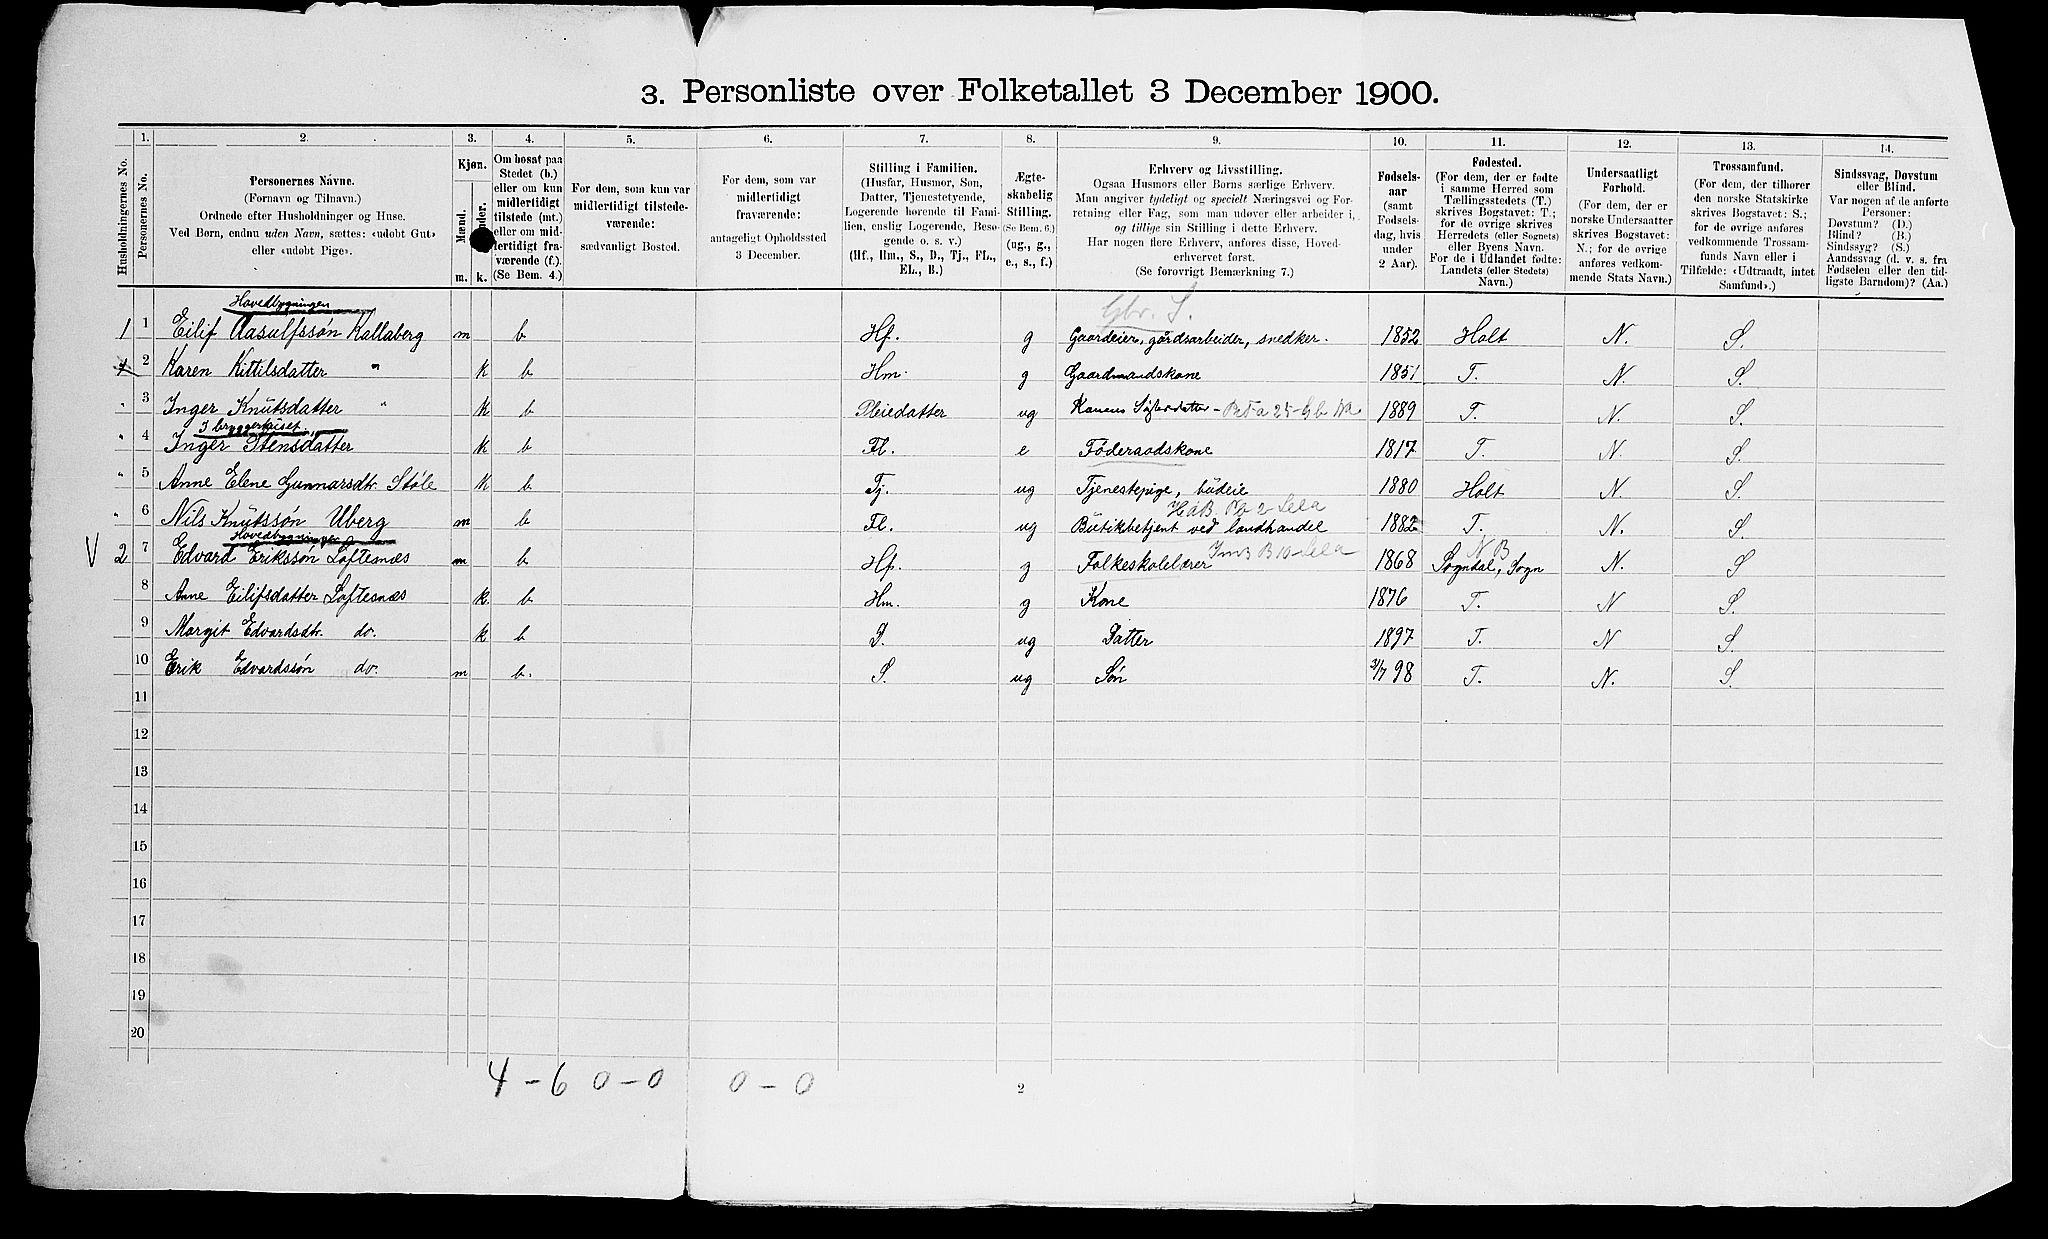 3. Personliste over Folketallet 3 December 1900.
1. 2. 3. 4. 5. 6. 7. 8. 9. 10. 11. 12. 13. 14.
Husholdningernes No.
Personernes No.
Personernes Navne.
(Fornavn og Tilnavn.)
Ordnede efter Husholdninger og Huse.
Ved Børn, endnu uden Navn, sættes: «udøbt Gut»
eller «udøbt Pige».
Kjøn.
Mænd.
m. k.
Om bosat paa
Stedet (b.)
eller om kun
midlertidigt
tilstede (mt.)
eller om mid-
lertidigt fra-
værende (f.).
(Se Bem. 4.)
For dem, som kun var
midlertidigt tilstede-
værende:
sædvanligt Bosted.
For dem, som var
midlertidigt
fraværende:
antageligt Opholdssted
3 December.
Stilling i Familien.
(Husfar, Husmor, Søn,
Datter, Tjenestetyende,
Logerende hørende til Fami-
lien, enslig Logerende, Besø-
gende o. s. v.)
(Hf., Hm., S., D., Tj., FL.,
EL., B.)
Ægte-
skabelig
Stilling.
(Se Bem. 6.)
(ug., g.,
e., s., f.)
Erhverv og Livsstilling.
Ogsaa Husmors eller Børns særlige Erhverv.
Man angiver tydeligt og specielt Næringsvei og For-
retning eller Fag, som man udøver eller arbeider i,
og tillige sin Stilling i dette Erhverv.
Har nogen flere Erhverv, anføres disse, Hoved-
erhvervet først.
(Se forøvrigt Bemærkning 7.)
Fødsels-
aar
(samt
Fødsels-
dag, hvis
under
2 Aar).
Fødested.
(For dem, der er fødte
i samme Herred som
Tællingsstedets (T.)
skrives Bogstavet: T.;
for de øvrige skrives
Herredets (eller Sognets)
eller Byens Navn.
For de i Udlandet fødte:
Landets (eller Stedets)
Navn.)
Undersaatligt
Forhold.
(For dem, der er
norske Undersaatter
skrives Bogstavet:
N.; for de øvrige
anføres vedkom-
mende Stats Navn.)
Trossamfund.
(For dem, der tilhører
den norske Statskirke
skrives Bogstavet: S.;
for de øvrige anføres
vedkommende Trossam-
funds Navn eller i
Tilfælde: «Udtraadt, intet
Samfund».)
Sindssvag, Døvstum
eller Blind.
Var nogen af de anførte
Personer:
Døvstum? (D.)
Blind? (B.)
Sindssyg? (S.)
Aandssvag (d. v. s. fra
Fødselen eller den tid-
ligste Barndom)? (Aa.)
Hovedbygningen
Gbr. S.
1 1 Eilif Aasulfssøn Kallaberg m b Hf. g Gaardeier, gårdsarbeider, snedker. 1852 Holt N. S.
2 Karen Kittilsdatter " k b Hm. g Gaardmandskone 1851 T. N. S.
" 3 Inger Knutsdatter " k b Pleiedatter ug Konens Søsterdatter 1889 T. N. S.
I bryggerhuset
" 4 Inger Stensdatter k b Fl. e Føderaadskone 1817 T. N. S.
" 5 Anne Elene Gunnarsdtr. Støle k b Tj. ug Tjenestepige, budeie 1880 Holt N. S.
" 6 Nils Knutssøn Uberg m b Fl. ug Butikbetjent ved landhandel 1882 T. N. S.
Hovedbygningen
V 2 7 Edvard Erikssøn Loftesnæs m b Hf. g Folkeskolelærer 1868 Sogndal, Sogn N. S
NB
8 Anne Eilifsdatter Loftesnæs k. b Hm. g Kone 1876 T. N S.
9 Margit Edvardsdtr. do. k b D. ug Datter 1897 T. N S.
10 Erik Edvardssøn do. m b. S. ug Søn 31/7 98 T. N. S.
11
12
13
14
15
16
17
18
19
20
4 - 6 0 - 0 0 - 0
2